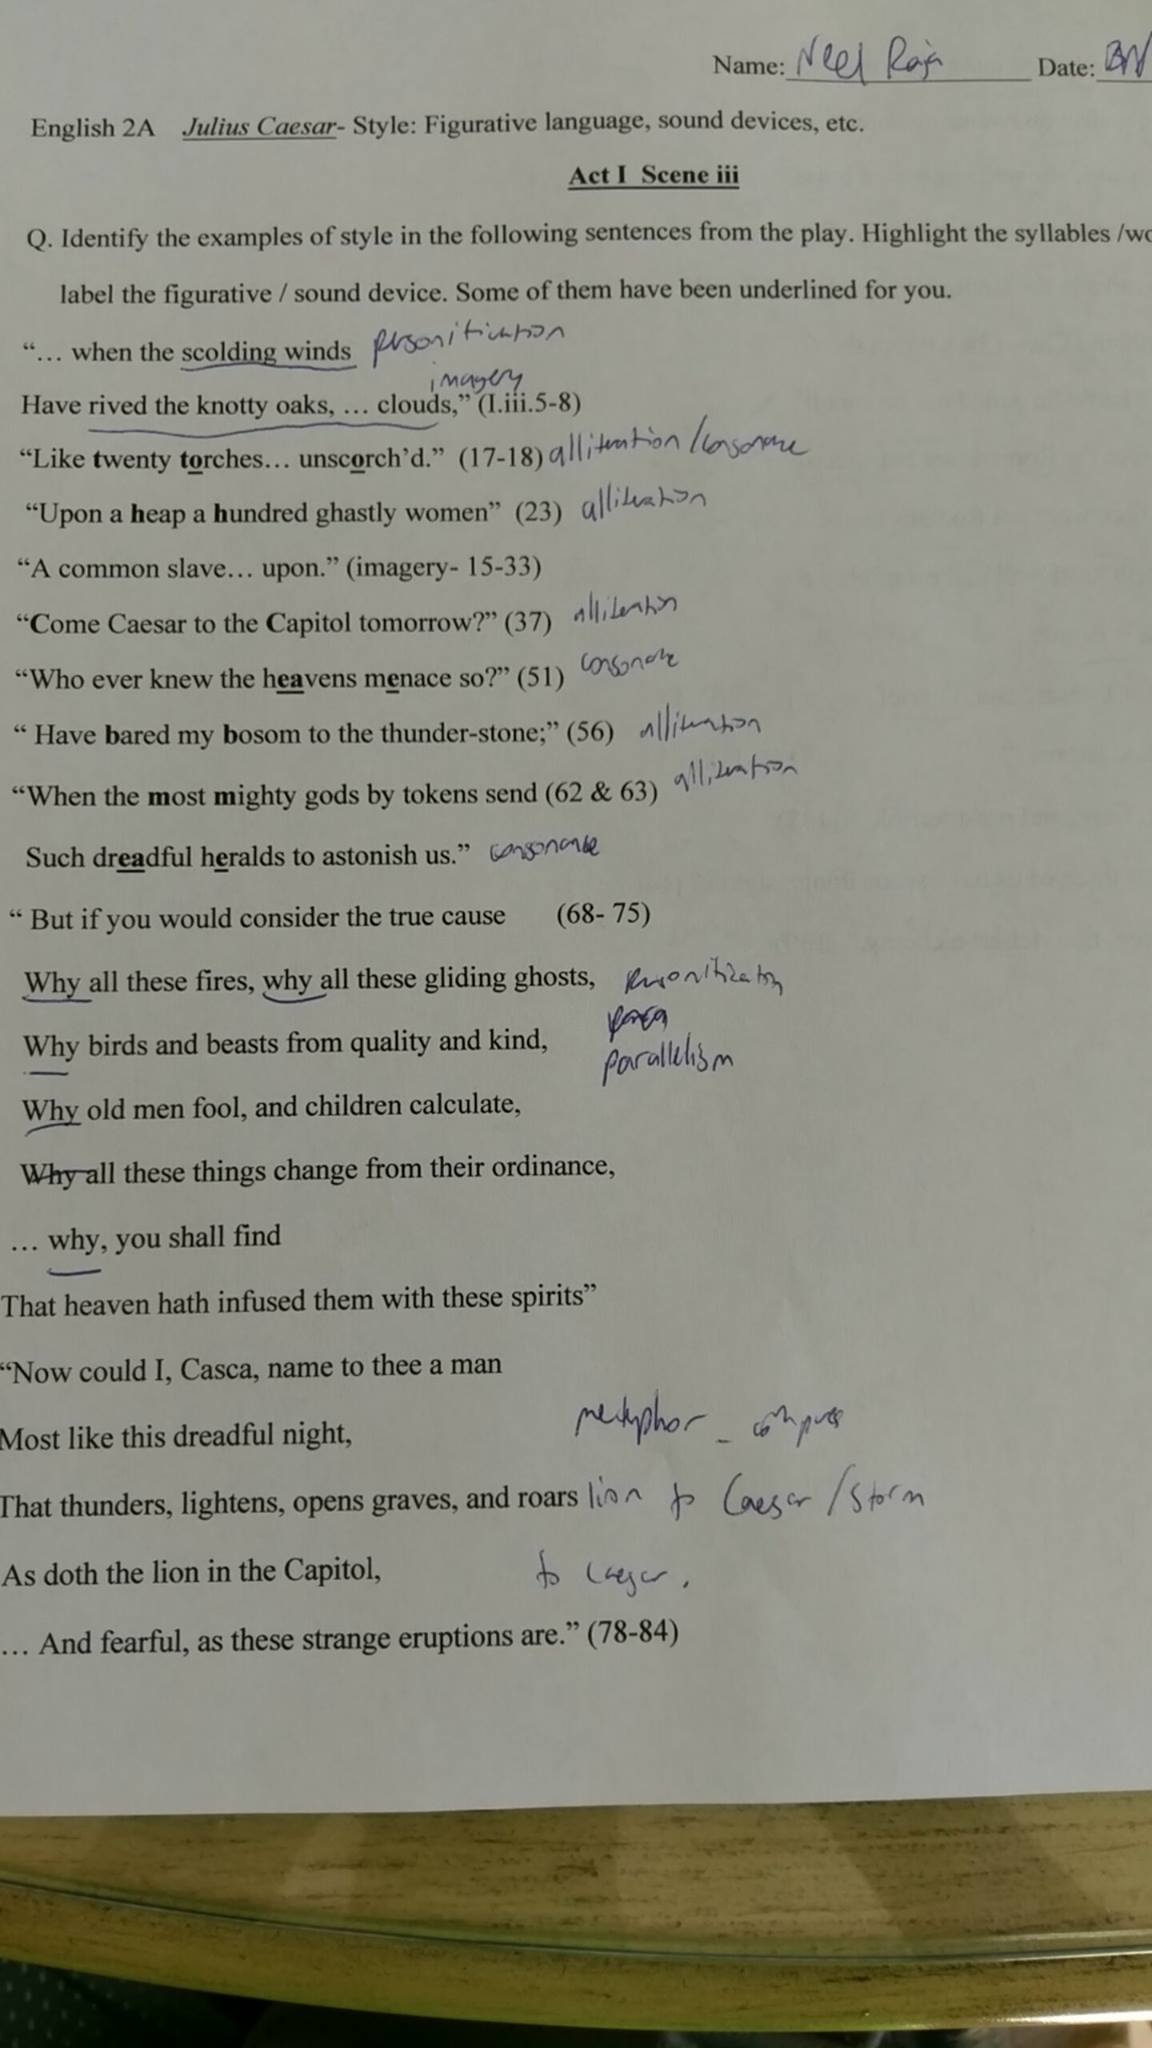 Name: Neel Raja Date:
English 2A Julius Caesar- Style: Figurative language, sound devices, etc.
Act I Scene iii
Q. Identify the examples of style in the following sentences from the play. Highlight the syllables /wo
label the figurative / sound device. Some of them have been underlined for you.
“… when the scolding winds personification
imagery
Have rived the knotty oaks, … clouds,” (I.iii.5-8)
“Like twenty torches… unscorch’d.” (17-18) alliteration / consonance
“Upon a heap a hundred ghastly women” (23) alliteration
“A common slave… upon.” (imagery- 15-33)
“Come Caesar to the Capitol tomorrow?” (37) alliteration
“Who ever knew the heavens menace so?” (51) consonance
“ Have bared my bosom to the thunder-stone;” (56) alliteration
“When the most mighty gods by tokens send (62 & 63) alliteration
Such dreadful heralds to astonish us.” consonance
“ But if you would consider the true cause (68- 75)
Why all these fires, why all these gliding ghosts, personification
Why birds and beasts from quality and kind, parallelism
Why old men fool, and children calculate,
Why all these things change from their ordinance,
… why, you shall find
That heaven hath infused them with these spirits”
“Now could I, Casca, name to thee a man
Most like this dreadful night, metaphor - compares
That thunders, lightens, opens graves, and roars lion to Caesar / storm
As doth the lion in the Capitol, to Caesar.
… And fearful, as these strange eruptions are.” (78-84)